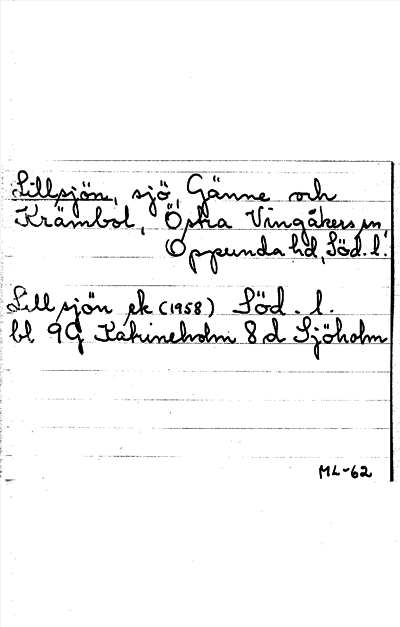 Lillsjön, sjö, Gänne och
Krämbol, Östra Vingåkers sn,
Oppunda hd, Söd. l.
Lillsjön ek (1958) Söd. l.
bl 9G Katrineholm 8 d Sjöholm
ML-62